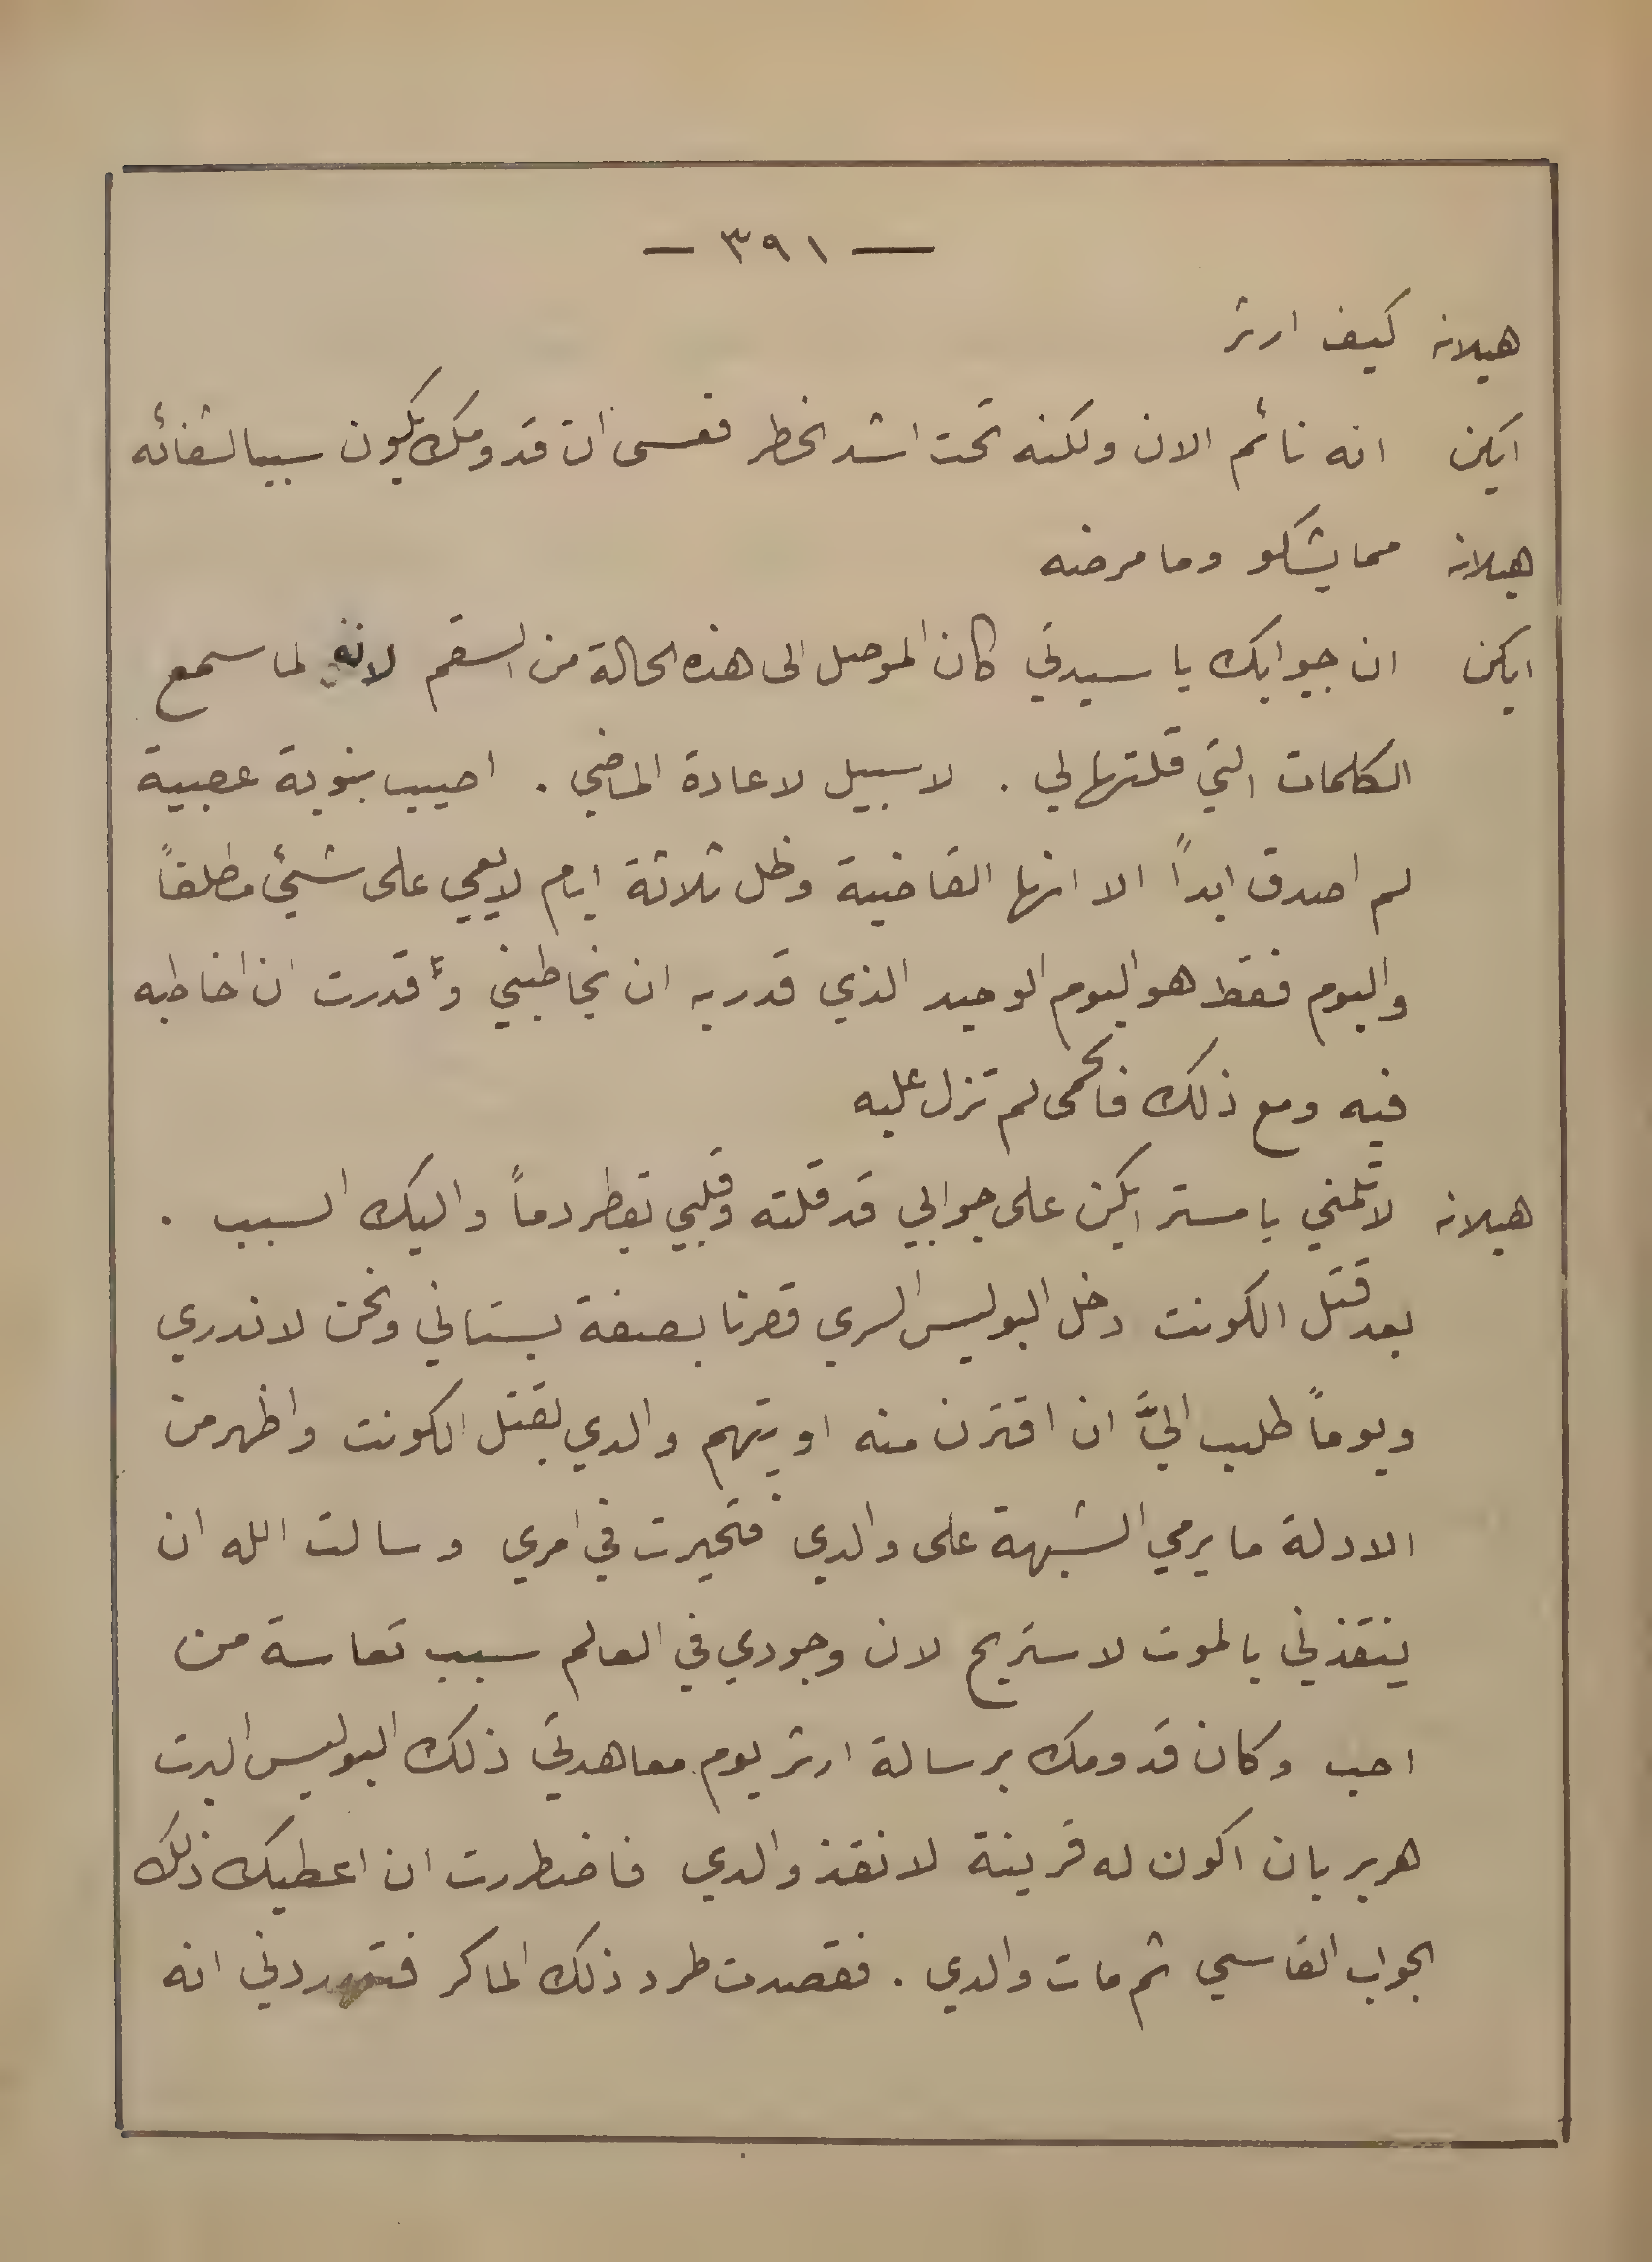 — ٣٩١ —
هيلانه كيف ارثر
ايكن انه نائم الان ولكنه تحت اشد الخطر فعسى ان قدومك يكون سببا لشفائه
هيلانه مما يشكو وما مرضه
ايكن ان جوابك يا سيدتي كان الموصل الى هذه الحالة من السقم لانه لما سمع
الكلمات التي قلتها لي . لا سبيل لاعادة الماضي . اصيب بنوبة عصبية
لم اصدق ابداً الا انها القاضية وظل ثلاثة ايام لا يعي على شيء مطلقاً
واليوم فقط هو اليوم الوحيد الذي قدر به ان يخاطبني وقدرت ان اخاطبه
فيه ومع ذلك فالحمى لم تزل عليه
هيلانه لا تلمني يا مستر ايكن على جوابي قد قلته وقلبي تقطر دماً واليك السبب .
بعد قتل الكونت دخل البوليس السري قصرنا بصفة بستاني ونحن لا ندري
ويوماً طلب اليَّ ان اقترن منه او يتهم والدي بقتل الكونت واظهر من
الادلة ما يرمي الشبهة على والدي فتحيرت في امري وسالت الله ان
ينقذني بالموت لاستريح لان وجودي في العالم سبب تعاسة من
احب وكان قدومك برسالة ارثر يوم معاهدتي ذلك البوليس البرت
هربر بان اكون له قرينة لانقذ والدي فاضطررت ان اعطيك ذلك
الجواب القاسي ثم مات والدي . فقصدت طرد ذلك الماكر فتهددني انه